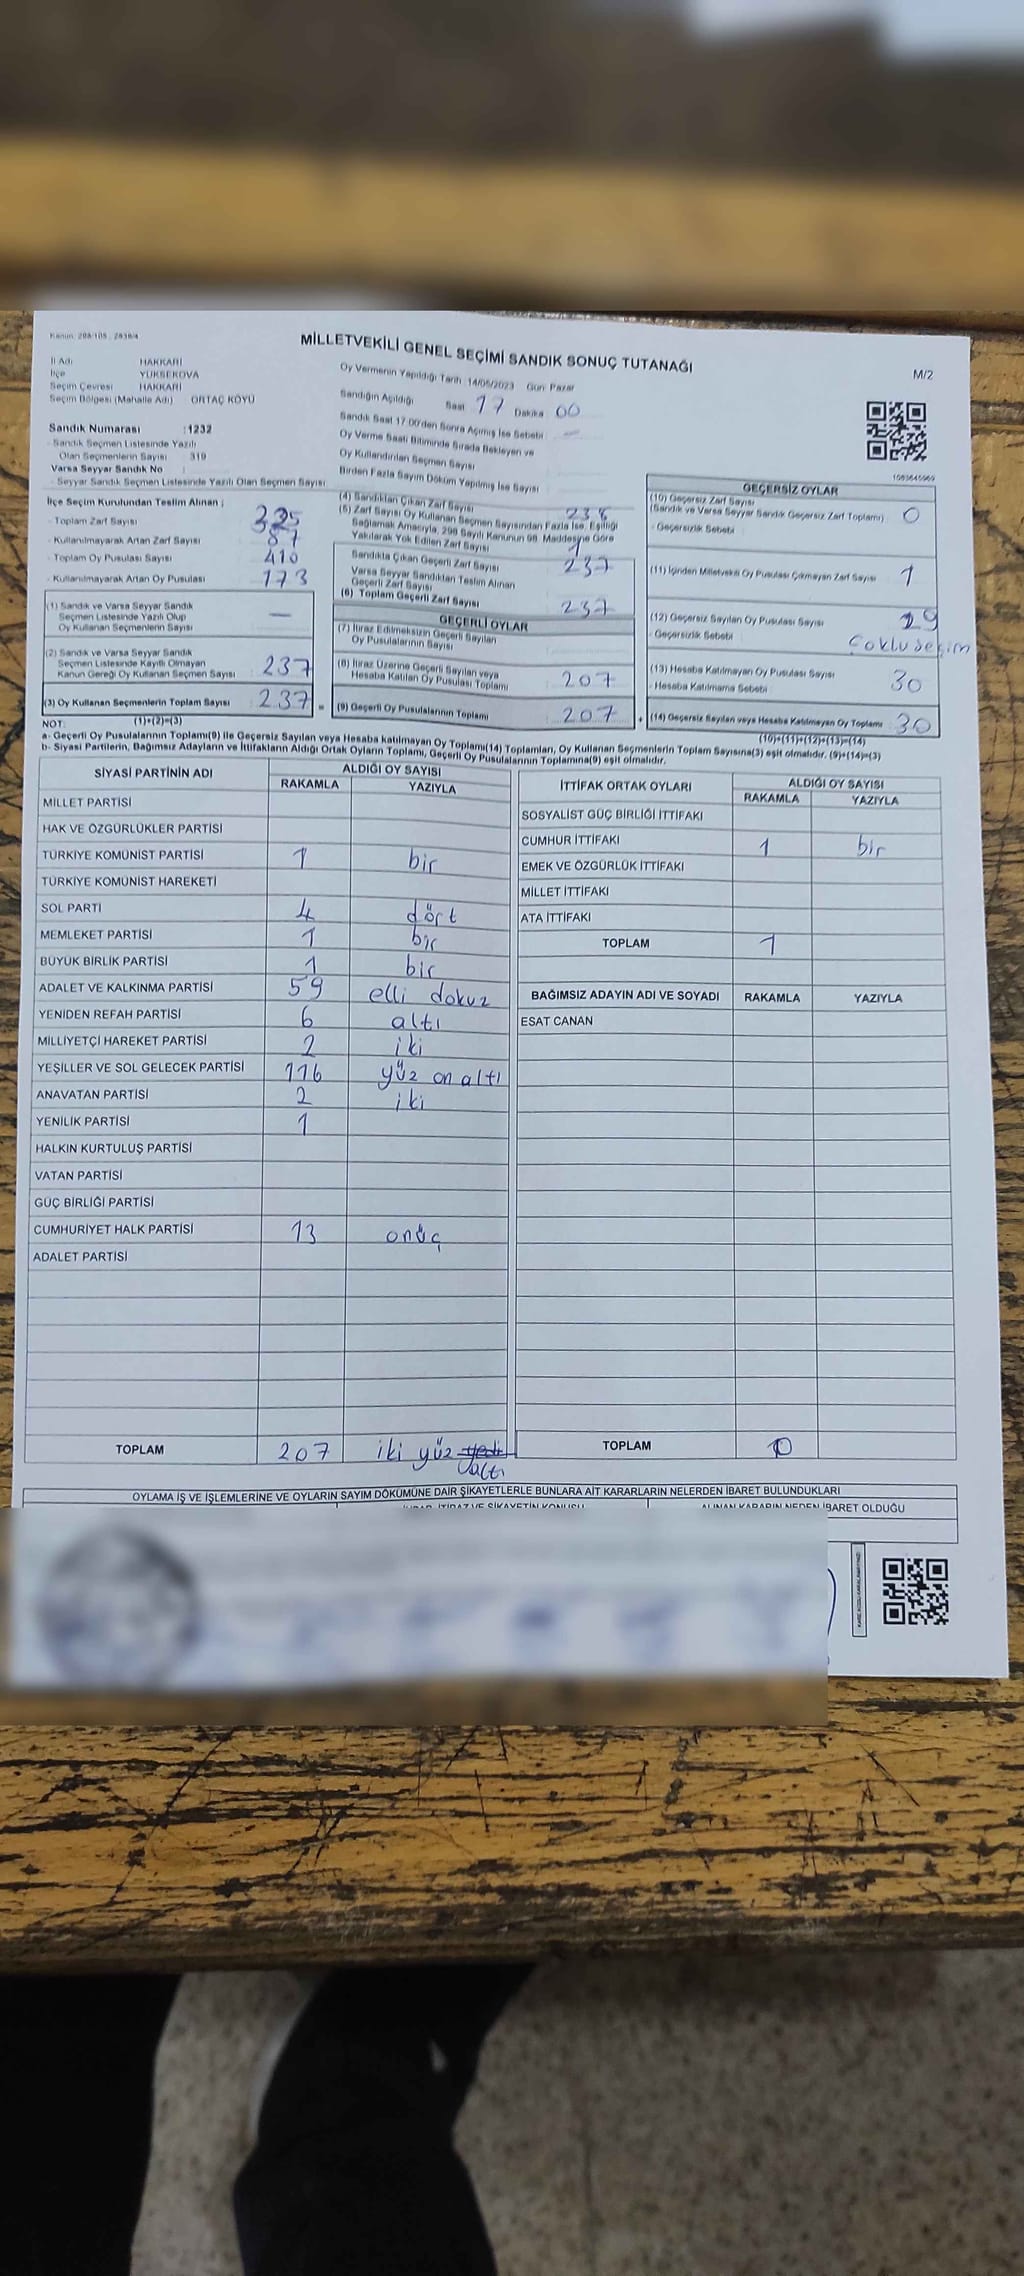 Kanun: 298/105 , 2839/4
MİLLETVEKİLİ GENEL SEÇİMİ SANDIK SONUÇ TUTANAĞI
M/2
İl Adı HAKKARİ
İlçe YÜKSEKOVA
Seçim Çevresi HAKKARİ
Seçim Bölgesi (Mahalle Adı) ORTAÇ KÖYÜ
Oy Vermenin Yapıldığı Tarih :14/05/2023 Gün: Pazar
Sandığın Açıldığı Saat 17 Dakika 00
Sandık Saat 17:00'den Sonra Açılmış İse Sebebi : —
Oy Verme Saati Bitiminde Sırada Bekleyen ve
Oy Kullandırılan Seçmen Sayısı
Birden Fazla Sayım Döküm Yapılmış İse Sayısı
Sandık Numarası :1232
- Sandık Seçmen Listesinde Yazılı
Olan Seçmenlerin Sayısı 319
Varsa Seyyar Sandık No
- Seyyar Sandık Seçmen Listesinde Yazılı Olan Seçmen Sayısı
İlçe Seçim Kurulundan Teslim Alınan :
- Toplam Zarf Sayısı 325
- Kullanılmayarak Artan Zarf Sayısı 87
- Toplam Oy Pusulası Sayısı 410
- Kullanılmayarak Artan Oy Pusulası 173
(1) Sandık ve Varsa Seyyar Sandık
Seçmen Listesinde Yazılı Olup
Oy Kullanan Seçmenlerin Sayısı —
(2) Sandık ve Varsa Seyyar Sandık
Seçmen Listesinde Kayıtlı Olmayan
Kanun Gereği Oy Kullanan Seçmen Sayısı 237
(3) Oy Kullanan Seçmenlerin Toplam Sayısı 237 =
(1)+(2)=(3)
(4) Sandıktan Çıkan Zarf Sayısı 238
(5) Zarf Sayısı Oy Kullanan Seçmen Sayısından Fazla İse, Eşitliği
Sağlamak Amacıyla, 298 Sayılı Kanunun 98. Maddesine Göre
Yakılarak Yok Edilen Zarf Sayısı 1
Sandıkta Çıkan Geçerli Zarf Sayısı 237
Varsa Seyyar Sandıktan Teslim Alınan
Geçerli Zarf Sayısı
(6) Toplam Geçerli Zarf Sayısı 237
GEÇERLİ OYLAR
(7) İtiraz Edilmeksizin Geçerli Sayılan
Oy Pusulalarının Sayısı
(8) İtiraz Üzerine Geçerli Sayılan veya
Hesaba Katılan Oy Pusulası Toplamı 207
(9) Geçerli Oy Pusulalarının Toplamı 207 +
GEÇERSİZ OYLAR
(10) Geçersiz Zarf Sayısı
(Sandık ve Varsa Seyyar Sandık Geçersiz Zarf Toplamı) 0
- Geçersizlik Sebebi
(11) İçinden Milletvekili Oy Pusulası Çıkmayan Zarf Sayısı 1
(12) Geçersiz Sayılan Oy Pusulası Sayısı 29
- Geçersizlik Sebebi Çoklu seçim
(13) Hesaba Katılmayan Oy Pusulası Sayısı 30
- Hesaba Katılmama Sebebi
(14) Geçersiz Sayılan veya Hesaba Katılmayan Oy Toplamı 30
(10)+(11)+(12)+(13)=(14)
NOT:
a- Geçerli Oy Pusulalarının Toplamı(9) ile Geçersiz Sayılan veya Hesaba katılmayan Oy Toplamı(14) Toplamları, Oy Kullanan Seçmenlerin Toplam Sayısına(3) eşit olmalıdır. (9)+(14)=(3)
b- Siyasi Partilerin, Bağımsız Adayların ve İttifakların Aldığı Ortak Oyların Toplamı, Geçerli Oy Pusulalarının Toplamına(9) eşit olmalıdır.
SİYASİ PARTİNİN ADI ALDIĞI OY SAYISI
RAKAMLA YAZIYLA
MİLLET PARTİSİ
HAK VE ÖZGÜRLÜKLER PARTİSİ
TÜRKİYE KOMÜNİST PARTİSİ 1 bir
TÜRKİYE KOMÜNİST HAREKETİ
SOL PARTİ 4 dört
MEMLEKET PARTİSİ 1 bir
BÜYÜK BİRLİK PARTİSİ 1 bir
ADALET VE KALKINMA PARTİSİ 59 elli dokuz
YENİDEN REFAH PARTİSİ 6 altı
MİLLİYETÇİ HAREKET PARTİSİ 2 iki
YEŞİLLER VE SOL GELECEK PARTİSİ 116 yüz on altı
ANAVATAN PARTİSİ 2 iki
YENİLİK PARTİSİ 1
HALKIN KURTULUŞ PARTİSİ
VATAN PARTİSİ
GÜÇ BİRLİĞİ PARTİSİ
CUMHURİYET HALK PARTİSİ 13 onüç
ADALET PARTİSİ
TOPLAM 207 iki yüz yedi
altı
İTTİFAK ORTAK OYLARI ALDIĞI OY SAYISI
RAKAMLA YAZIYLA
SOSYALİST GÜÇ BİRLİĞİ İTTİFAKI
CUMHUR İTTİFAKI 1 bir
EMEK VE ÖZGÜRLÜK İTTİFAKI
MİLLET İTTİFAKI
ATA İTTİFAKI
TOPLAM 1
BAĞIMSIZ ADAYIN ADI VE SOYADI RAKAMLA YAZIYLA
ESAT CANAN
TOPLAM 0
OYLAMA İŞ VE İŞLEMLERİNE VE OYLARIN SAYIM DÖKÜMÜNE DAİR ŞİKAYETLERLE BUNLARA AİT KARARLARIN NELERDEN İBARET BULUNDUKLARI
İTİRAZ VE ŞİKAYETİN KONUSU ALINAN KARARIN NEDEN İBARET OLDUĞU